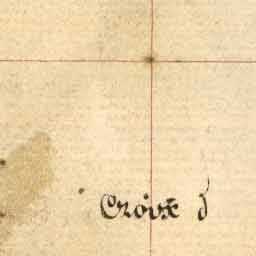 Croix d